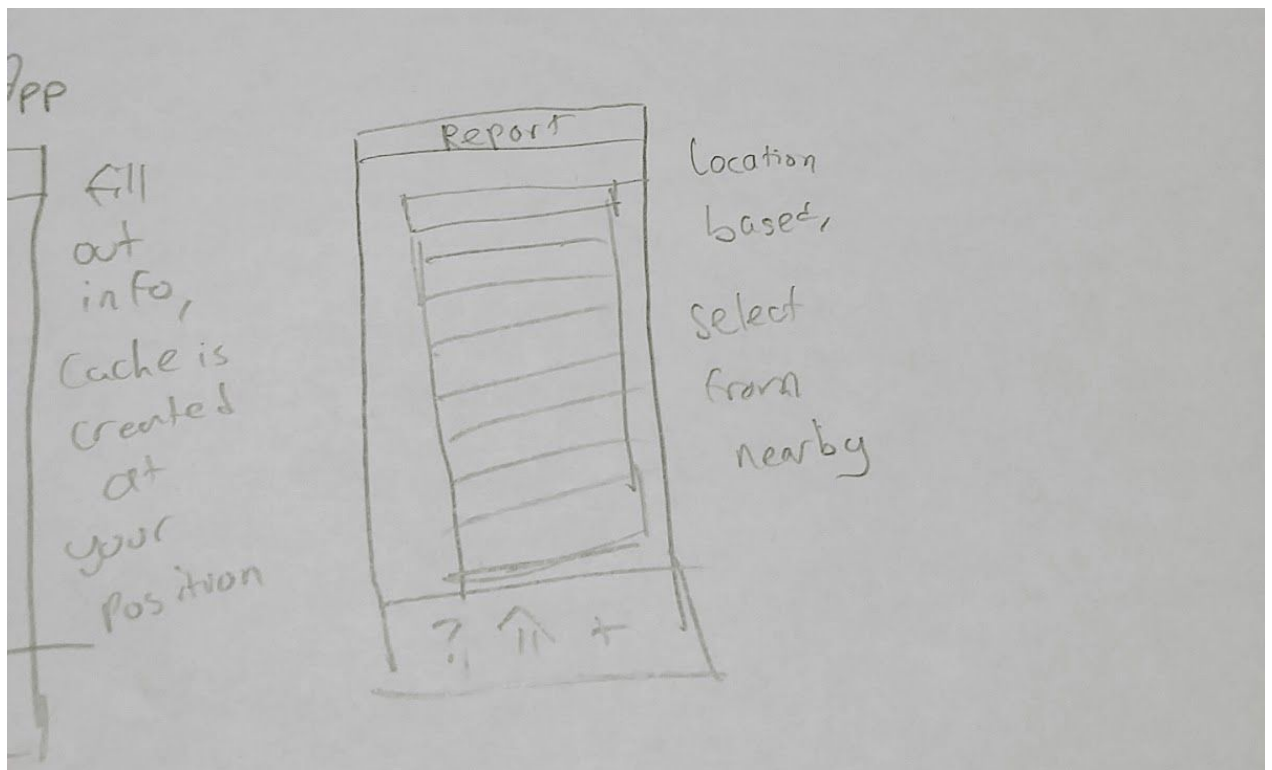 App
fill
out
info,
Cache is
created
at
your
position
Report
? +
Location
based,
select
from
nearby